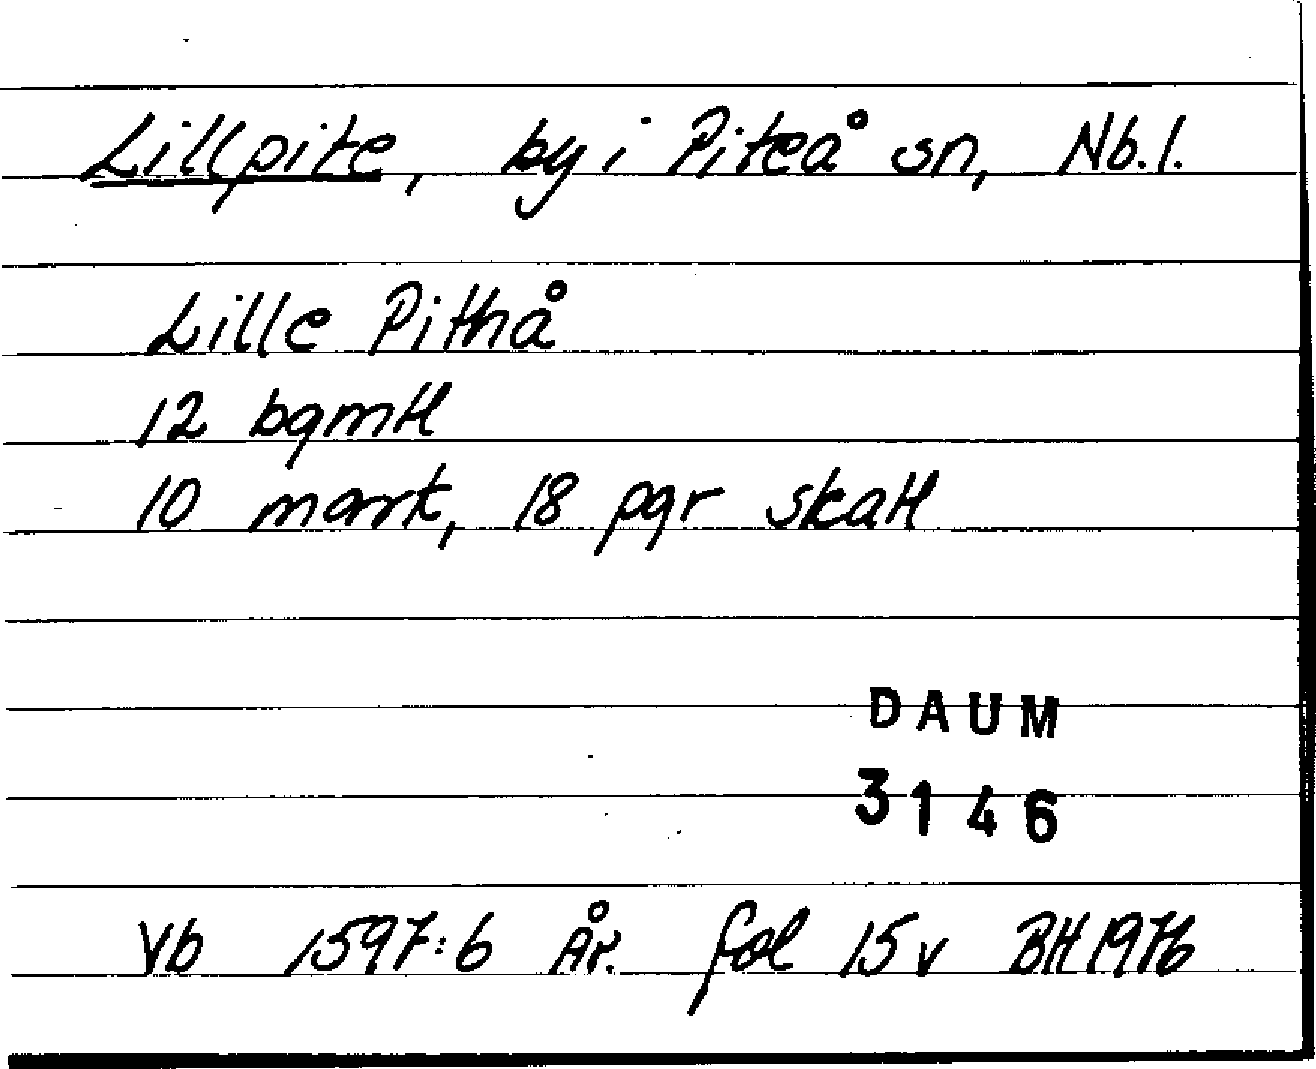 Lillpite, by i Piteå sn, Nb.l.
Lille Pithå
12 bqmtl
10 mark, 18 pgr skatt
DAUM
3146
Vb 1597:6 År. fol 15v BH 1976